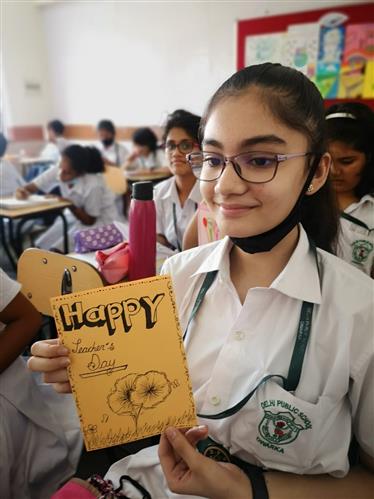 Happy
Teacher's
Day
DELHI PUBLIC SCHOOL
DWARKA